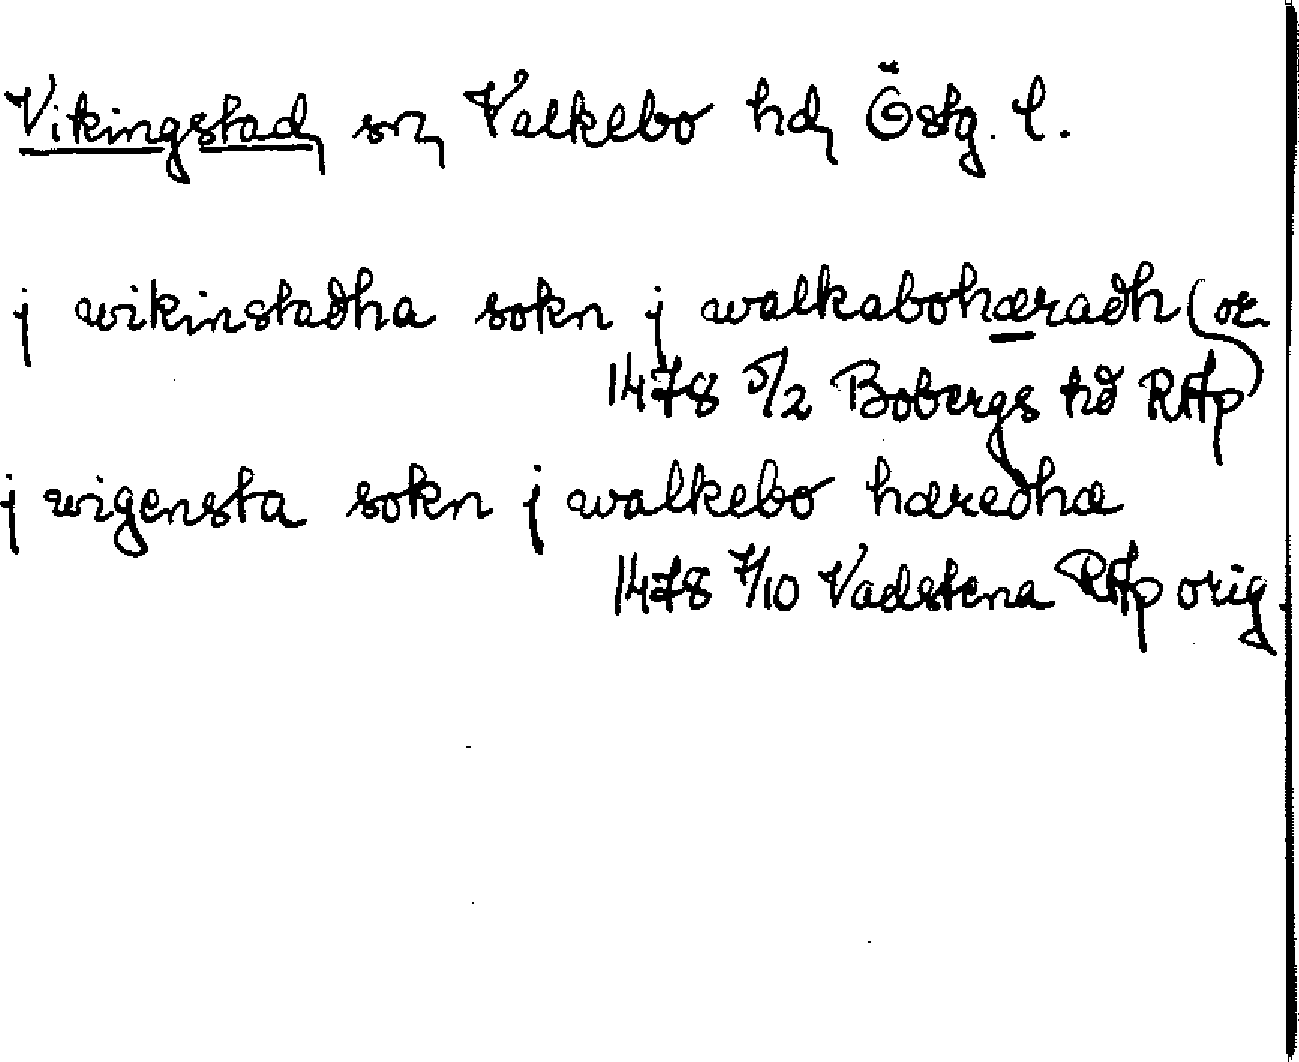 Vikingstad, sn, Valkebo hd, Östg. l.
j wikinstadha sokn j walkabohæradh (or.
1478 5/2 Bobergs hd RAp)
j wigensta sokn j walkebo hæredhæ
1478 7/10 Vadstena RAp orig.